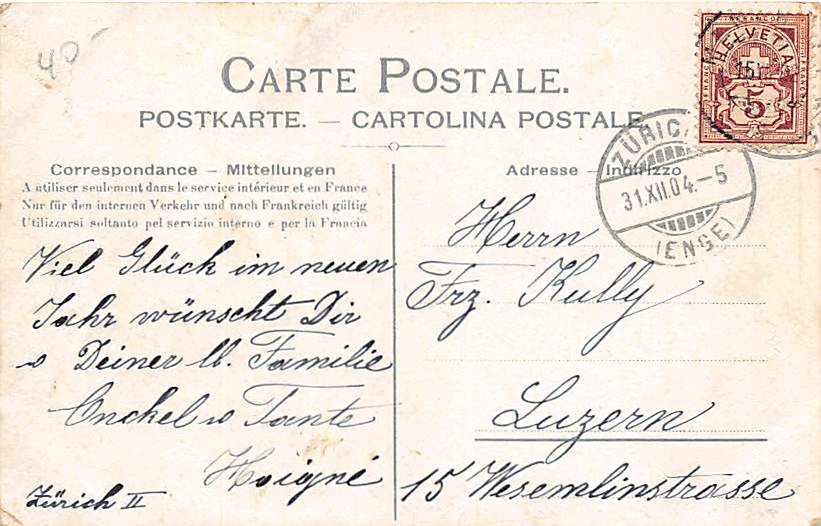 40.-
CARTE POSTALE.
POSTKARTE. — CARTOLINA POSTALE
Correspondance — Mitteilungen
A utiliser seulement dans le service intérieur et en France
Nur für den internen Verkehr und nach Frankreich gültig
Utilizzarsi soltanto pel servizio interno e per la Francia
Viel Glück im neuen
Jahr wünscht Dir
u Deiner ll. Familie
Onckel u Tante
Hoigné
Zürich II
Adresse — Indirizzo
HELVETIA
FRANCO
5
ZÜRICH
31.XII.04.–5
(ENGE)
Herrn
Frz. Kully
Luzern
15 Wesemlinstrasse